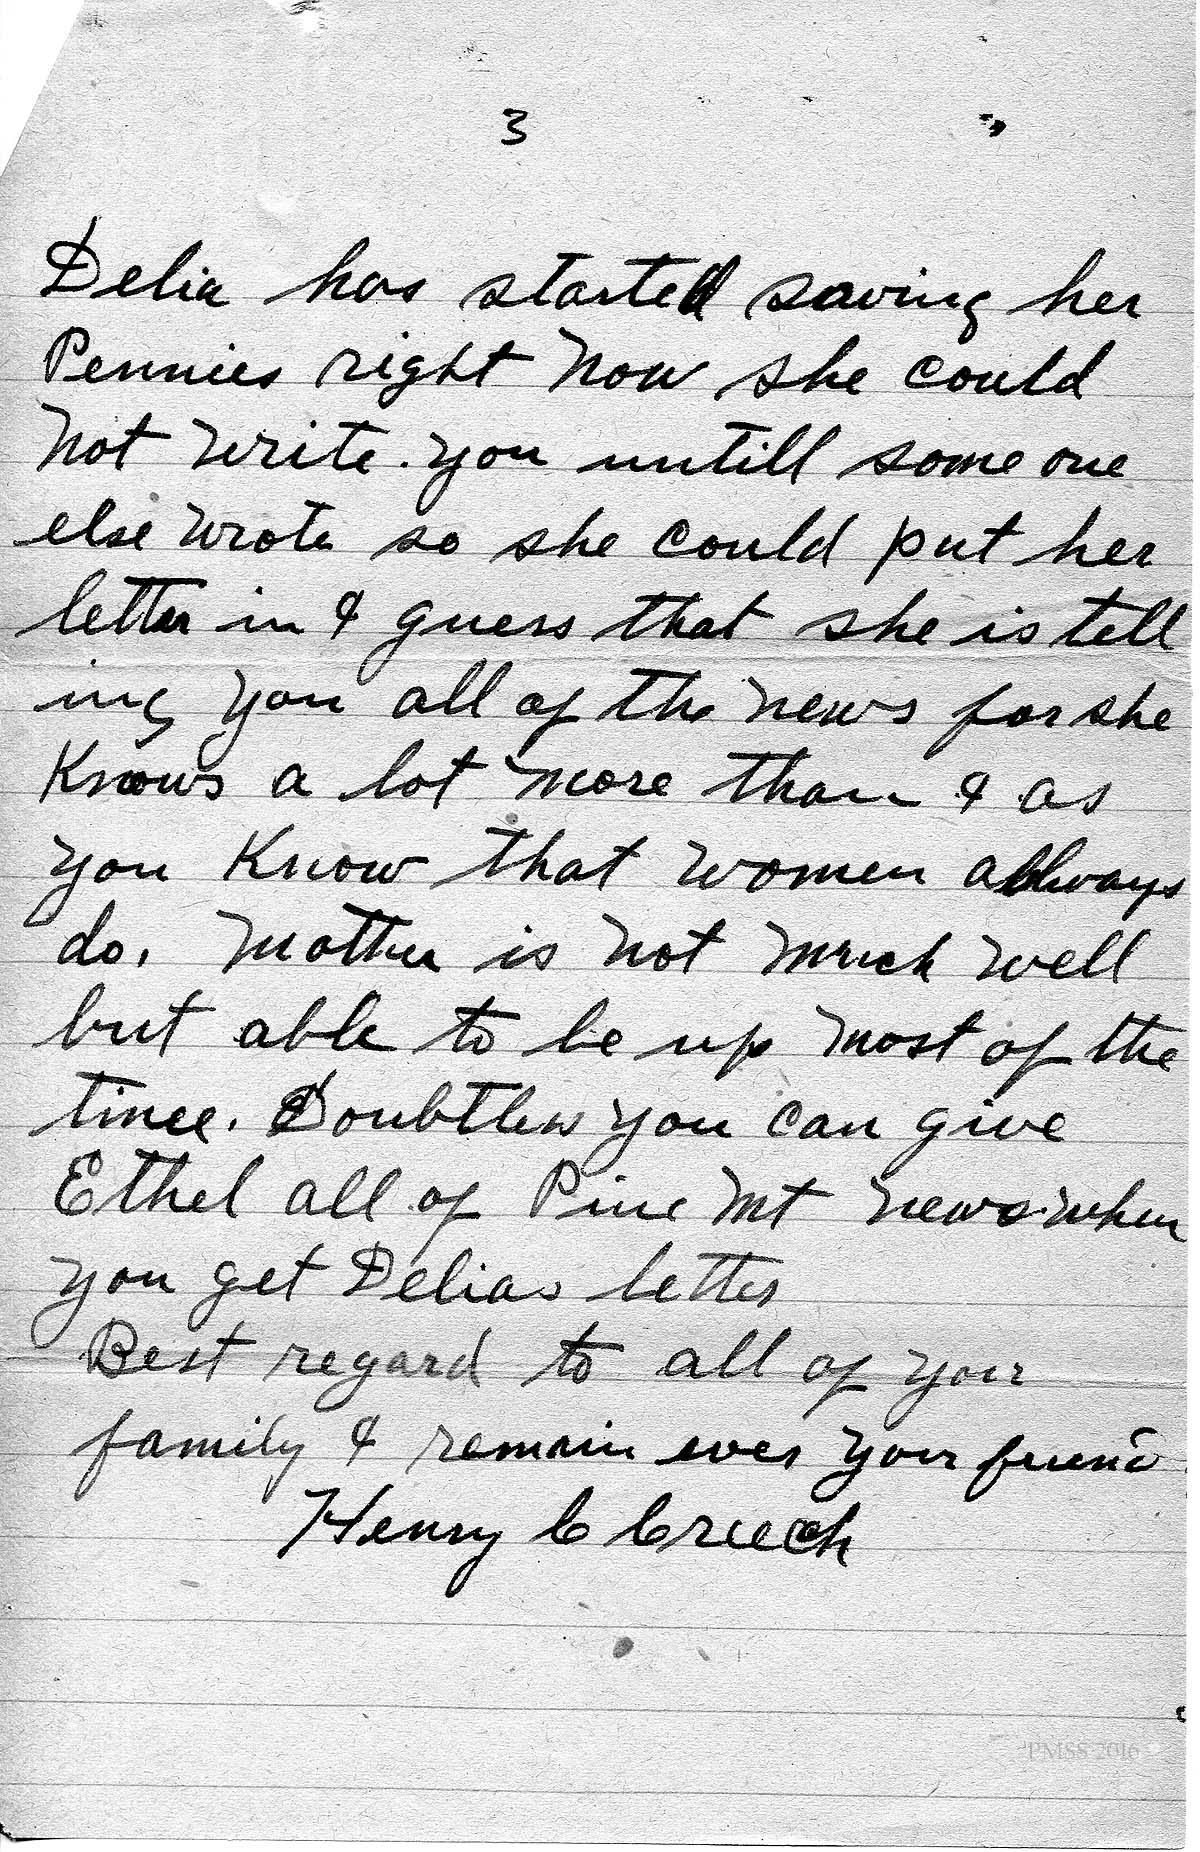 3
Delia has started saving her
Pennies right now she could
not write. you untill some one
else wrote so she could put her
letter in & guess that she is tell
ing you all of the news for she
Knows a lot more than & as
you Know that women allways
do. Mother is not much well
but able to be up most of the
time. Doubtless you can give
Ethel all of Pine Mt news when
you get Delias letter
Best regard to all of your
family & remain ever your friend
Henry C Creech
PMSS 2016